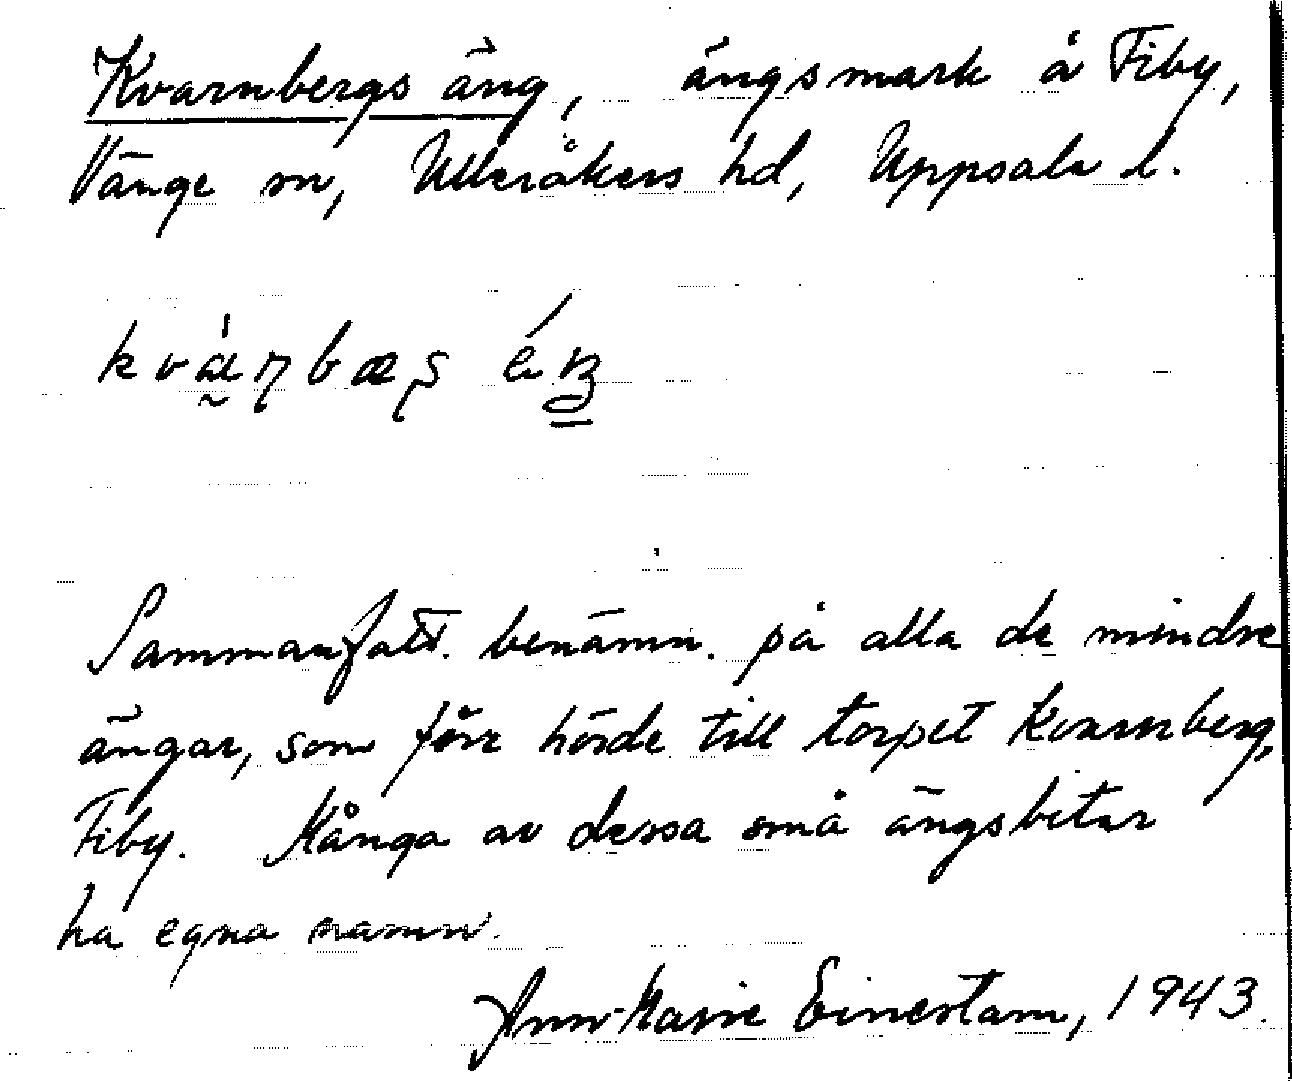 Kvarnbergs äng, ängsmark å Fiby,
Vänge sn, Ulleråkers hd, Uppsala l.
Sammanfatt. benämn. på alla de mindre
ängar, som förr hörde till torpet Kvarnberg,
Fiby. Många av dessa små ängsbitar
ha egna namn.
Ann-Marie Einerstam, 1943.